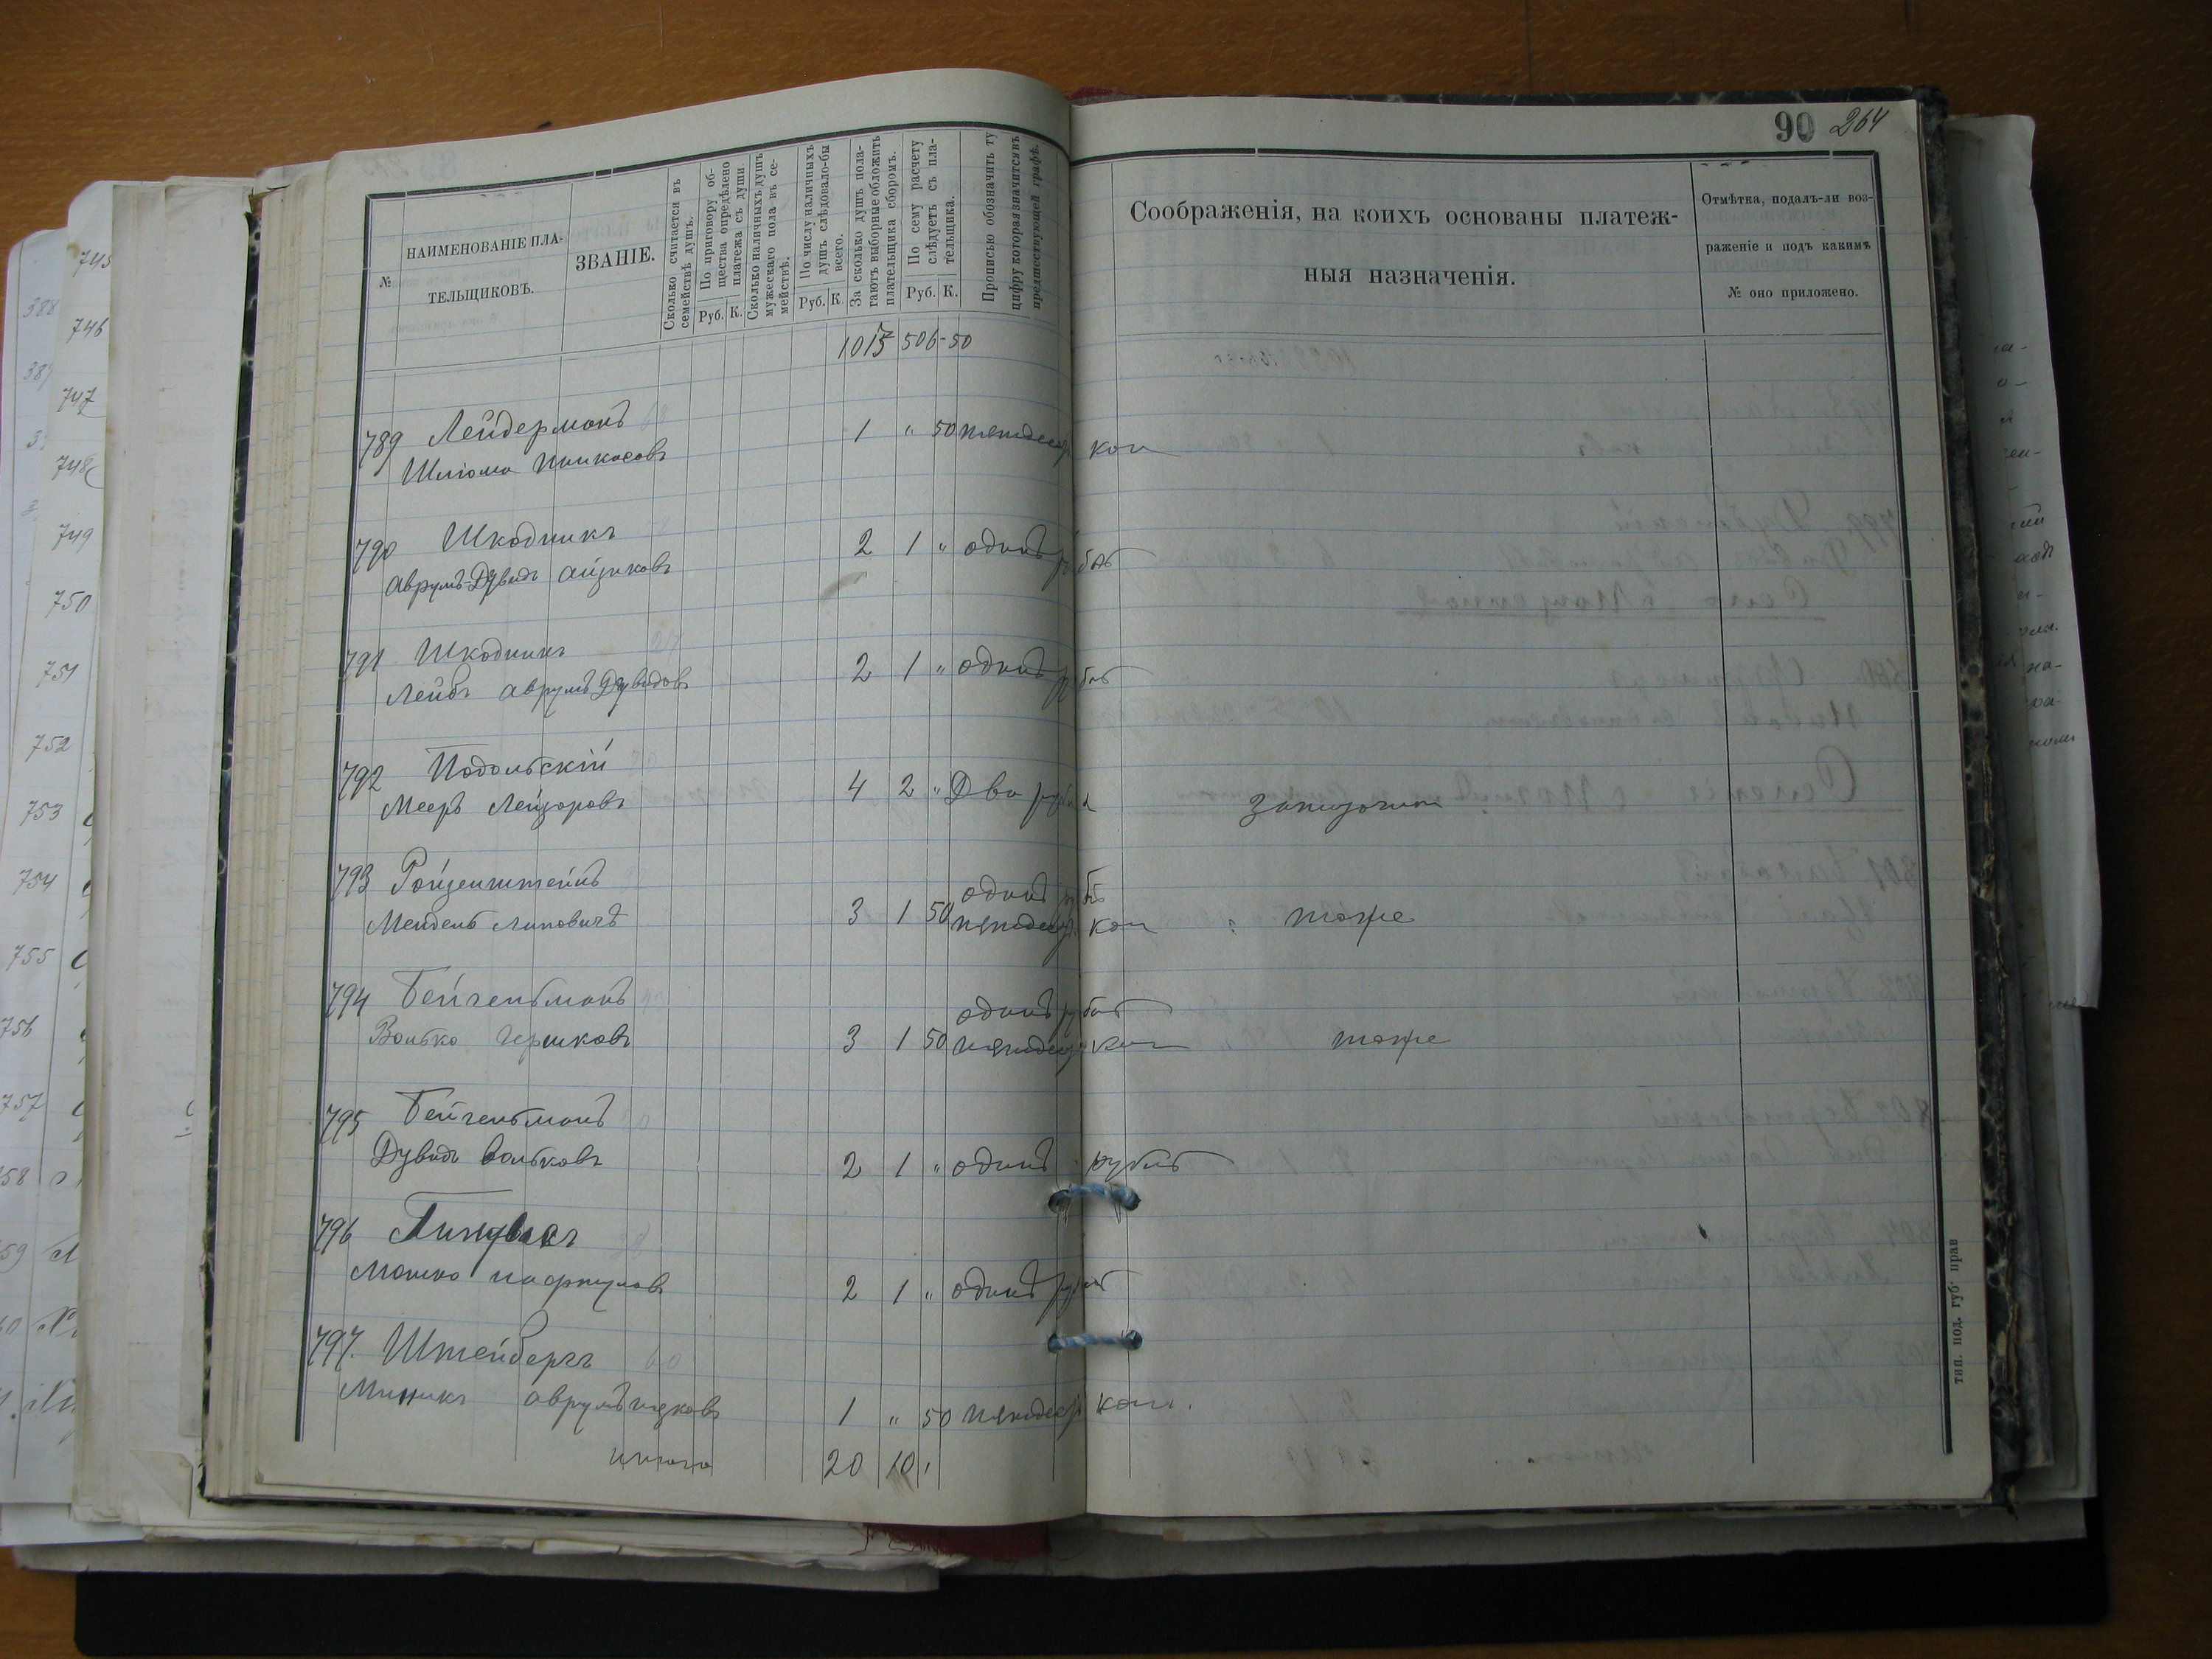 90 264
№
НАИМЕНОВАНІЕ ПЛА-
ТЕЛЬЩИКОВЪ.
ЗВАНІЕ.
Сколько считается въ
семействѣ душъ.
По приговору об-
щества опредѣлено
платежа съ души.
Руб. К.
Сколько наличныхъ душъ
мужескаго пола въ се-
мействѣ.
По числу наличныхъ
душъ слѣдовало-бы
всего.
Руб. К.
За сколько душъ пола-
гаютъ выборные обложить
плательщика сборомъ.
По сему расчету
слѣдуетъ съ пла-
тельщика.
Руб. К.
Прописью обозначить ту
цифру которая значится въ
предшествующей графѣ.
Соображенія, на коихъ основаны платеж-
ныя назначенія.
Отмѣтка, подалъ-ли воз-
раженіе и подъ какимъ
№ оно приложено.
1013 506-50
789 Лейдерманъ
Шліома Пинкасовъ 1 " 50 пятьдесят коп
790 Шкодникъ
Аврумъ-Дувидъ Айзиковъ 2 1 " одинъ рубль
791 Шкодникъ
Лейбъ Аврумъ Дувидовъ 2 1 " одинъ рубль
792 Подольскій
Мееръ Лейзоровъ 4 2 " Два рубля
793 Ройзенштейнъ
Мендель Липовичъ 3 1 50 одинъ рубль
пятьдесят коп тоже
794 Бейгельманъ
Волько Гершковъ 3 1 50 одинъ рубль
пятьдесят коп тоже
795 Бейгельманъ
Дувидъ Вольковъ 2 1 " одинъ рубль
796
Мошко 2 1 " одинъ рубль
797. Штейбергъ
1 " 50 пятьдесят коп.
итого 20 10 "
тип. под. губ. прав
745
746
747
748
749
750
751
752
753
754
755
756
757